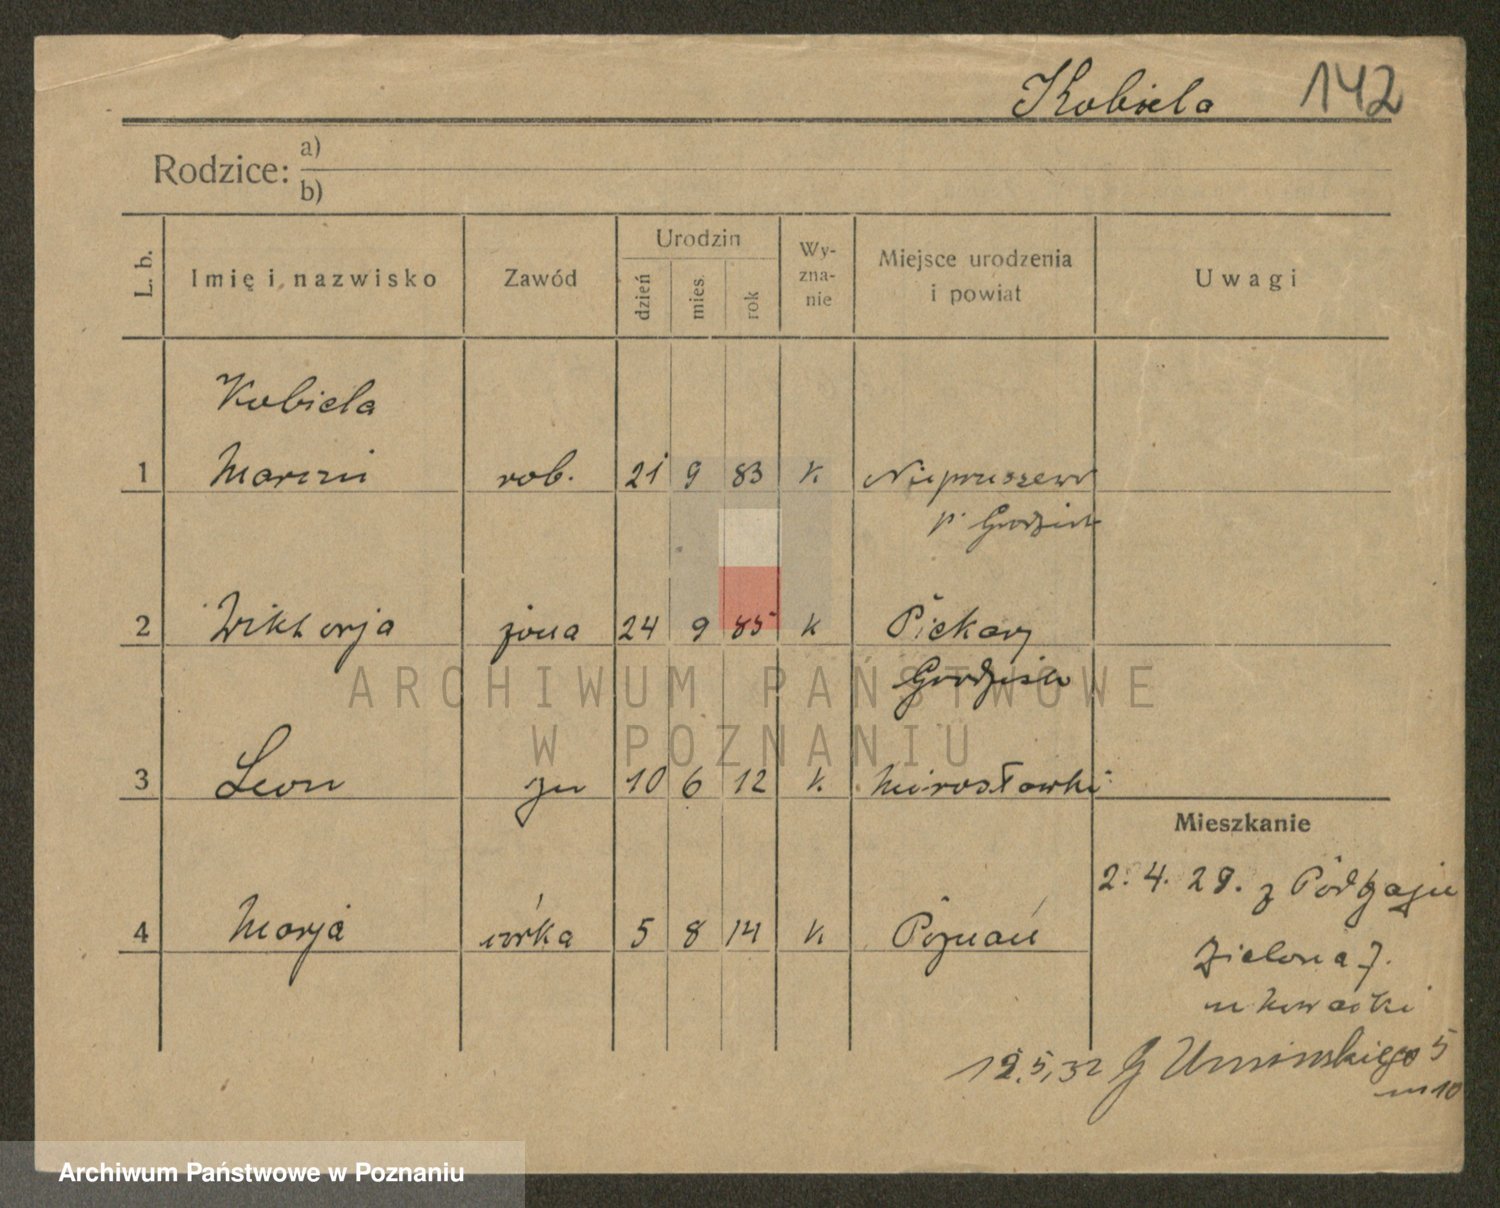 Kobiela 142
Rodzice: a)
b)
L. b. Imię i nazwisko Zawód Urodzin dzień mies. rok Wy-zna-nie Miejsce urodzenia i powiat Uwagi
Kobiela
1 Marcin rob. 21 9 83 K Niepruszewo
p. Grodzisk
2 Wiktorja żona 24 9 85 K Piekary
Grodzisk
3 Leon syn 10 6 12 K Mirosławki
Mieszkanie
2. 4. 29. z Podgaju
4 Marja córka 5 8 14 K Poznań
Zielona 7.
m Nowacki
12.5.32 G Umińskiego 5
m 10
ARCHIWUM PAŃSTWOWE
W POZNANIU
Archiwum Państwowe w Poznaniu